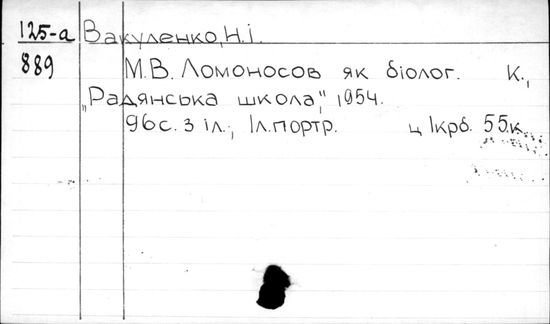 125-а Вакуленко, Н.І.
889 М.В. Ломоносов як біолог. К.,
„Радянська школа", 1954.
96с. з іл.; Іл.портр. ц 1крб. 55к.